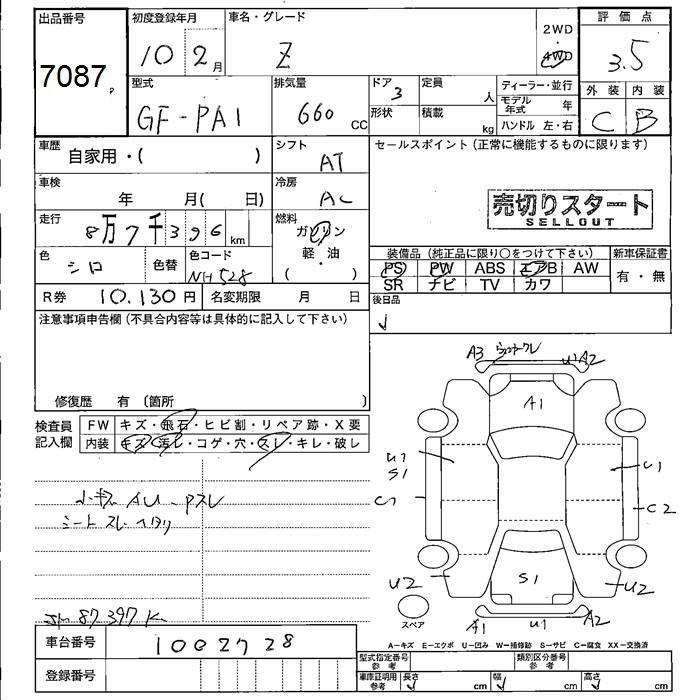 出品番号
7087
P
初度登録年月
10 2月
車名・グレード
Z
2WD
4WD
評価点
3.5
外装 内装
C B
型式
GF-PA1
排気量
660 CC
ドア 3
形状
定員 人
積載 kg
ディーラー・並行
モデル年式 年
ハンドル 左・右
車歴
自家用・( )
シフト
AT
セールスポイント(正常に機能するものに限ります)
売切りスタート
SELLOUT
車検
年 月( 日)
冷房
AC
走行
8万7千396 km
燃料
ガソリン
軽・油
( )
色
シロ
色替
色コード
NH528
装備品(純正品に限り○をつけて下さい)
PS PW ABS エアB AW
SR ナビ TV カワ
新車保証書
有・無
R券 10.130円
名変期限 月 日
後日品
注意事項申告欄(不具合内容等は具体的に記入して下さい)
修復歴 有 〔箇所 〕
検査員
記入欄
FW キズ・飛石・ヒビ割・リペア跡・X要
内装 キズ・汚レ・コゲ・穴・スレ・キレ・破レ
小キズ AU-Pスレ
シート スレ ヘタリ
87397K
A3
U1 A2
A1
U1
S1
U1
C1
C2
U2
S1
U2
A1
U1
A2
スペア
A-キズ E-エクボ U-凹み W-補修跡 S-サビ C-腐食 XX-交換済
車台番号
1002728
登録番号
型式指定番号
参考
類別区分番号
参考
車庫証明用
参考
長さ cm
幅 cm
高さ cm